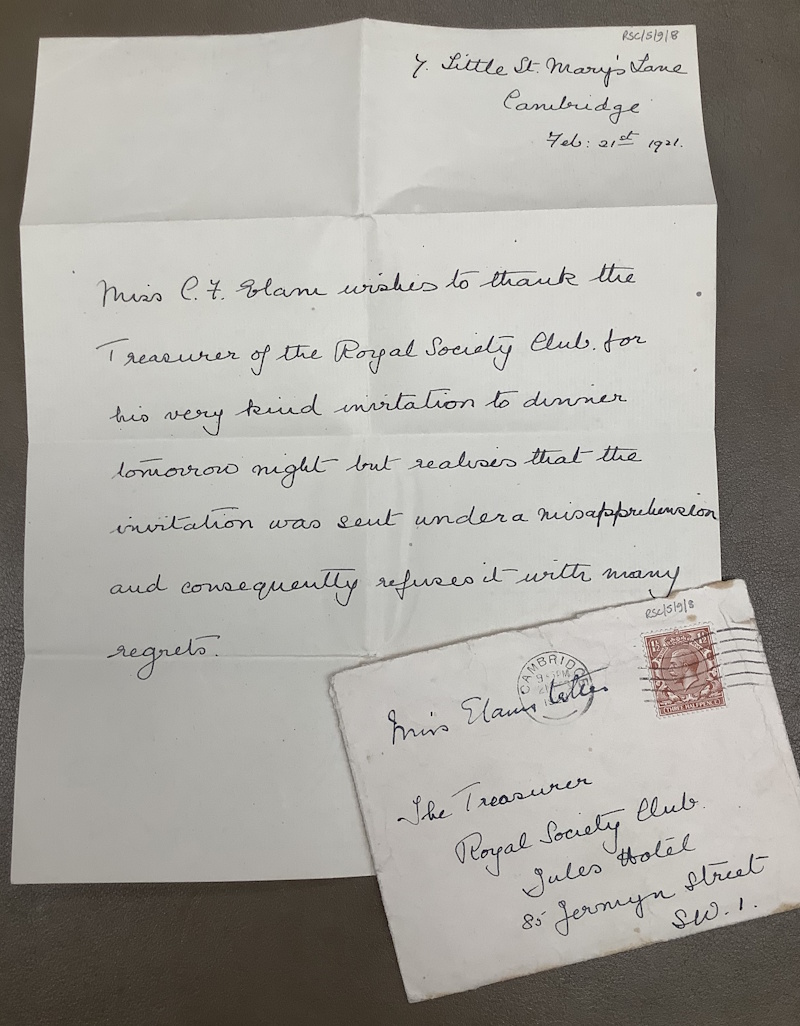 RSC/5/9/8
7. Little St. Mary's Lane
Cambridge
Feb: 21st 1921.
Miss C. F. Elam wishes to thank the
Treasurer of the Royal Society Club. for
his very kind invitation to dinner
tomorrow night but realises that the
invitation was sent under a misapprehension
and consequently refuses it with many
regrets.
RSC/5/9/8
CAMBRIDGE
THREE HALFPENCE
Miss Elam's letter
The Treasurer
Royal Society Club.
Jules Hotel
85 Jermyn Street
S.W.1.